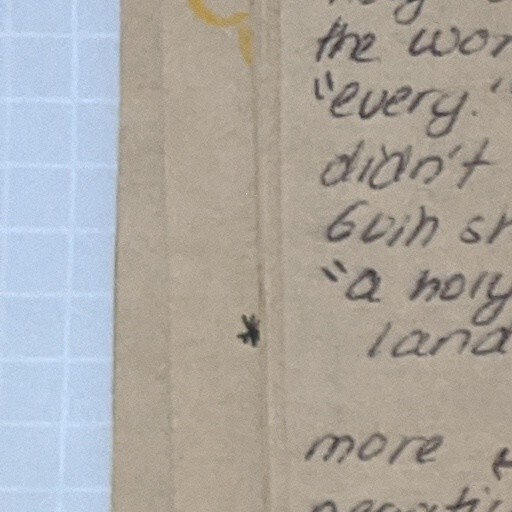 the wor
"every."
didn't
Guin sh
"a holy
* land
more